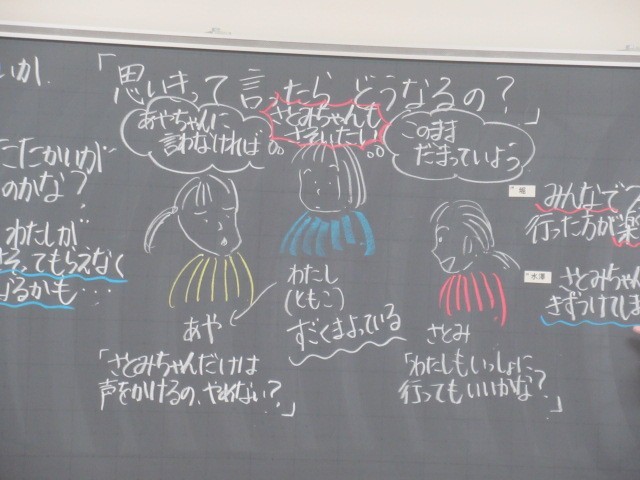 「思いきって言ったら どうなるの？」
いか.
あやちゃんに
言わなければ
さとみちゃんも
さそいたい
このまま
だまっていよう
たたかいが
のかな？
わたしが
そってもらえなく
なるかも・・・
わたし
(ともこ)
すごくまよっている
あや
「さとみちゃんだけは
声をかけるの、やめない？」
さとみ
「わたしもいっしょに
行ってもいいかな？」
みんなで
行った方が楽
水澤
さとみちゃん
きずつけてしま